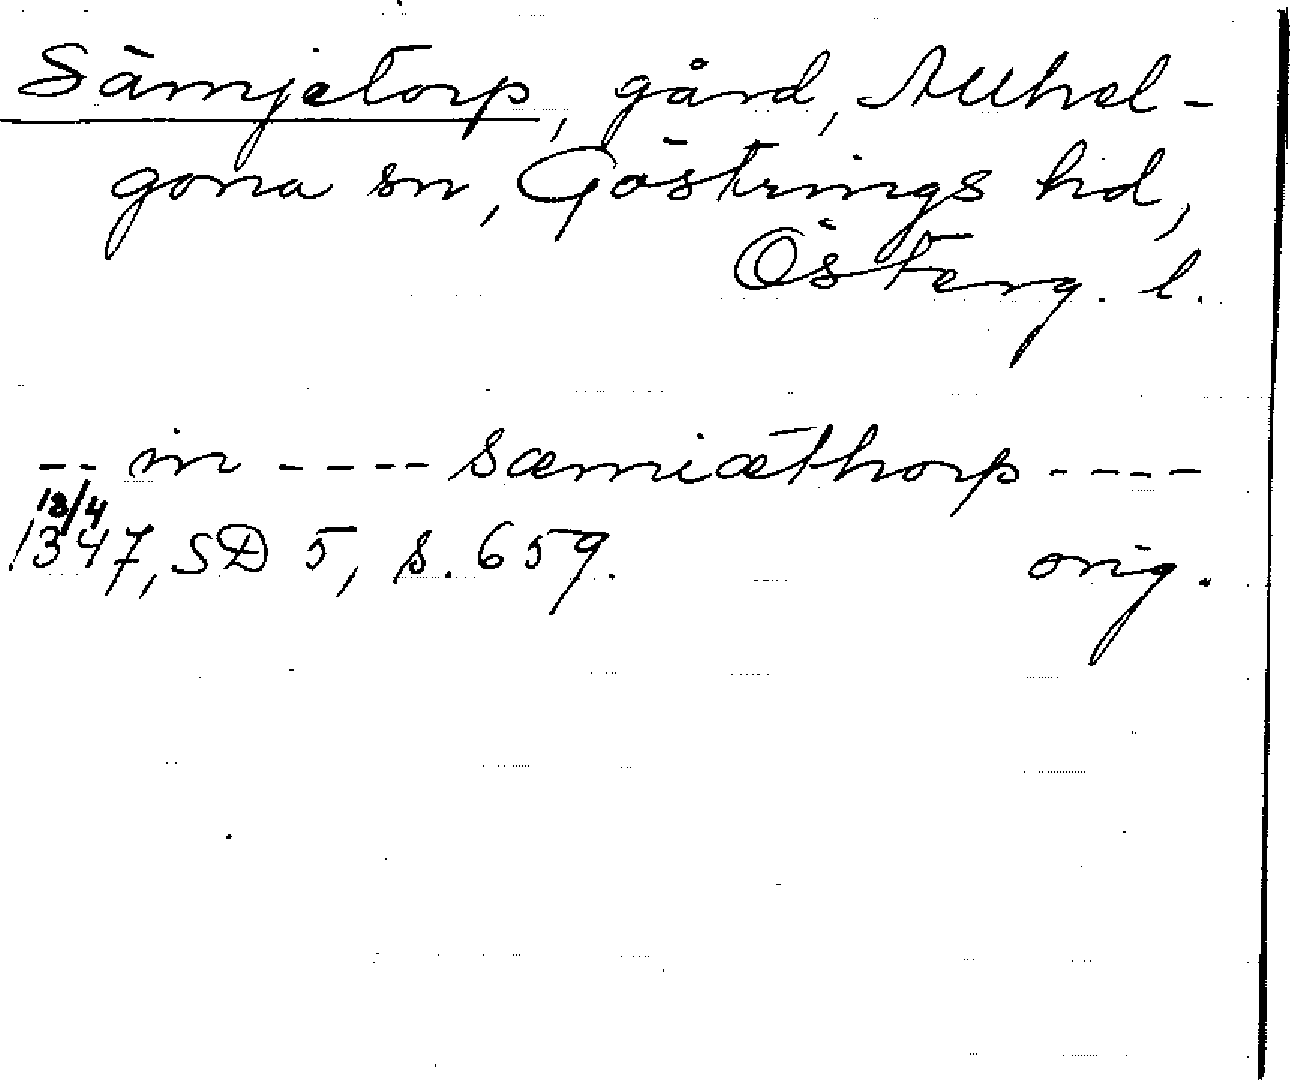 Sämjetorp, gård, Allhel-
gona sn, Göstrings hd,
Österg. l.
-- in ---- Sæmiæthorp ----
18/4
1347, SD 5, s. 659. orig.